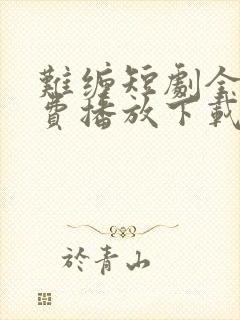 難缠短劇全
費播放下載
於青山